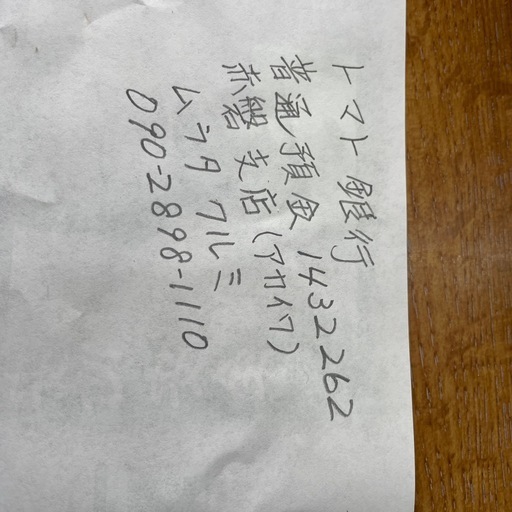 トマト銀行
普通預金 1432262
赤磐支店(アカイワ)
ムラタ フルミ
090-2898-1110